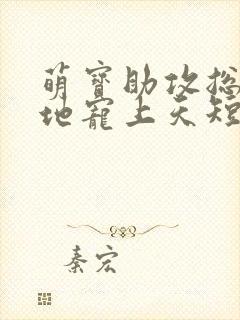 萌寳助攻总
地寵上天短
秦宏